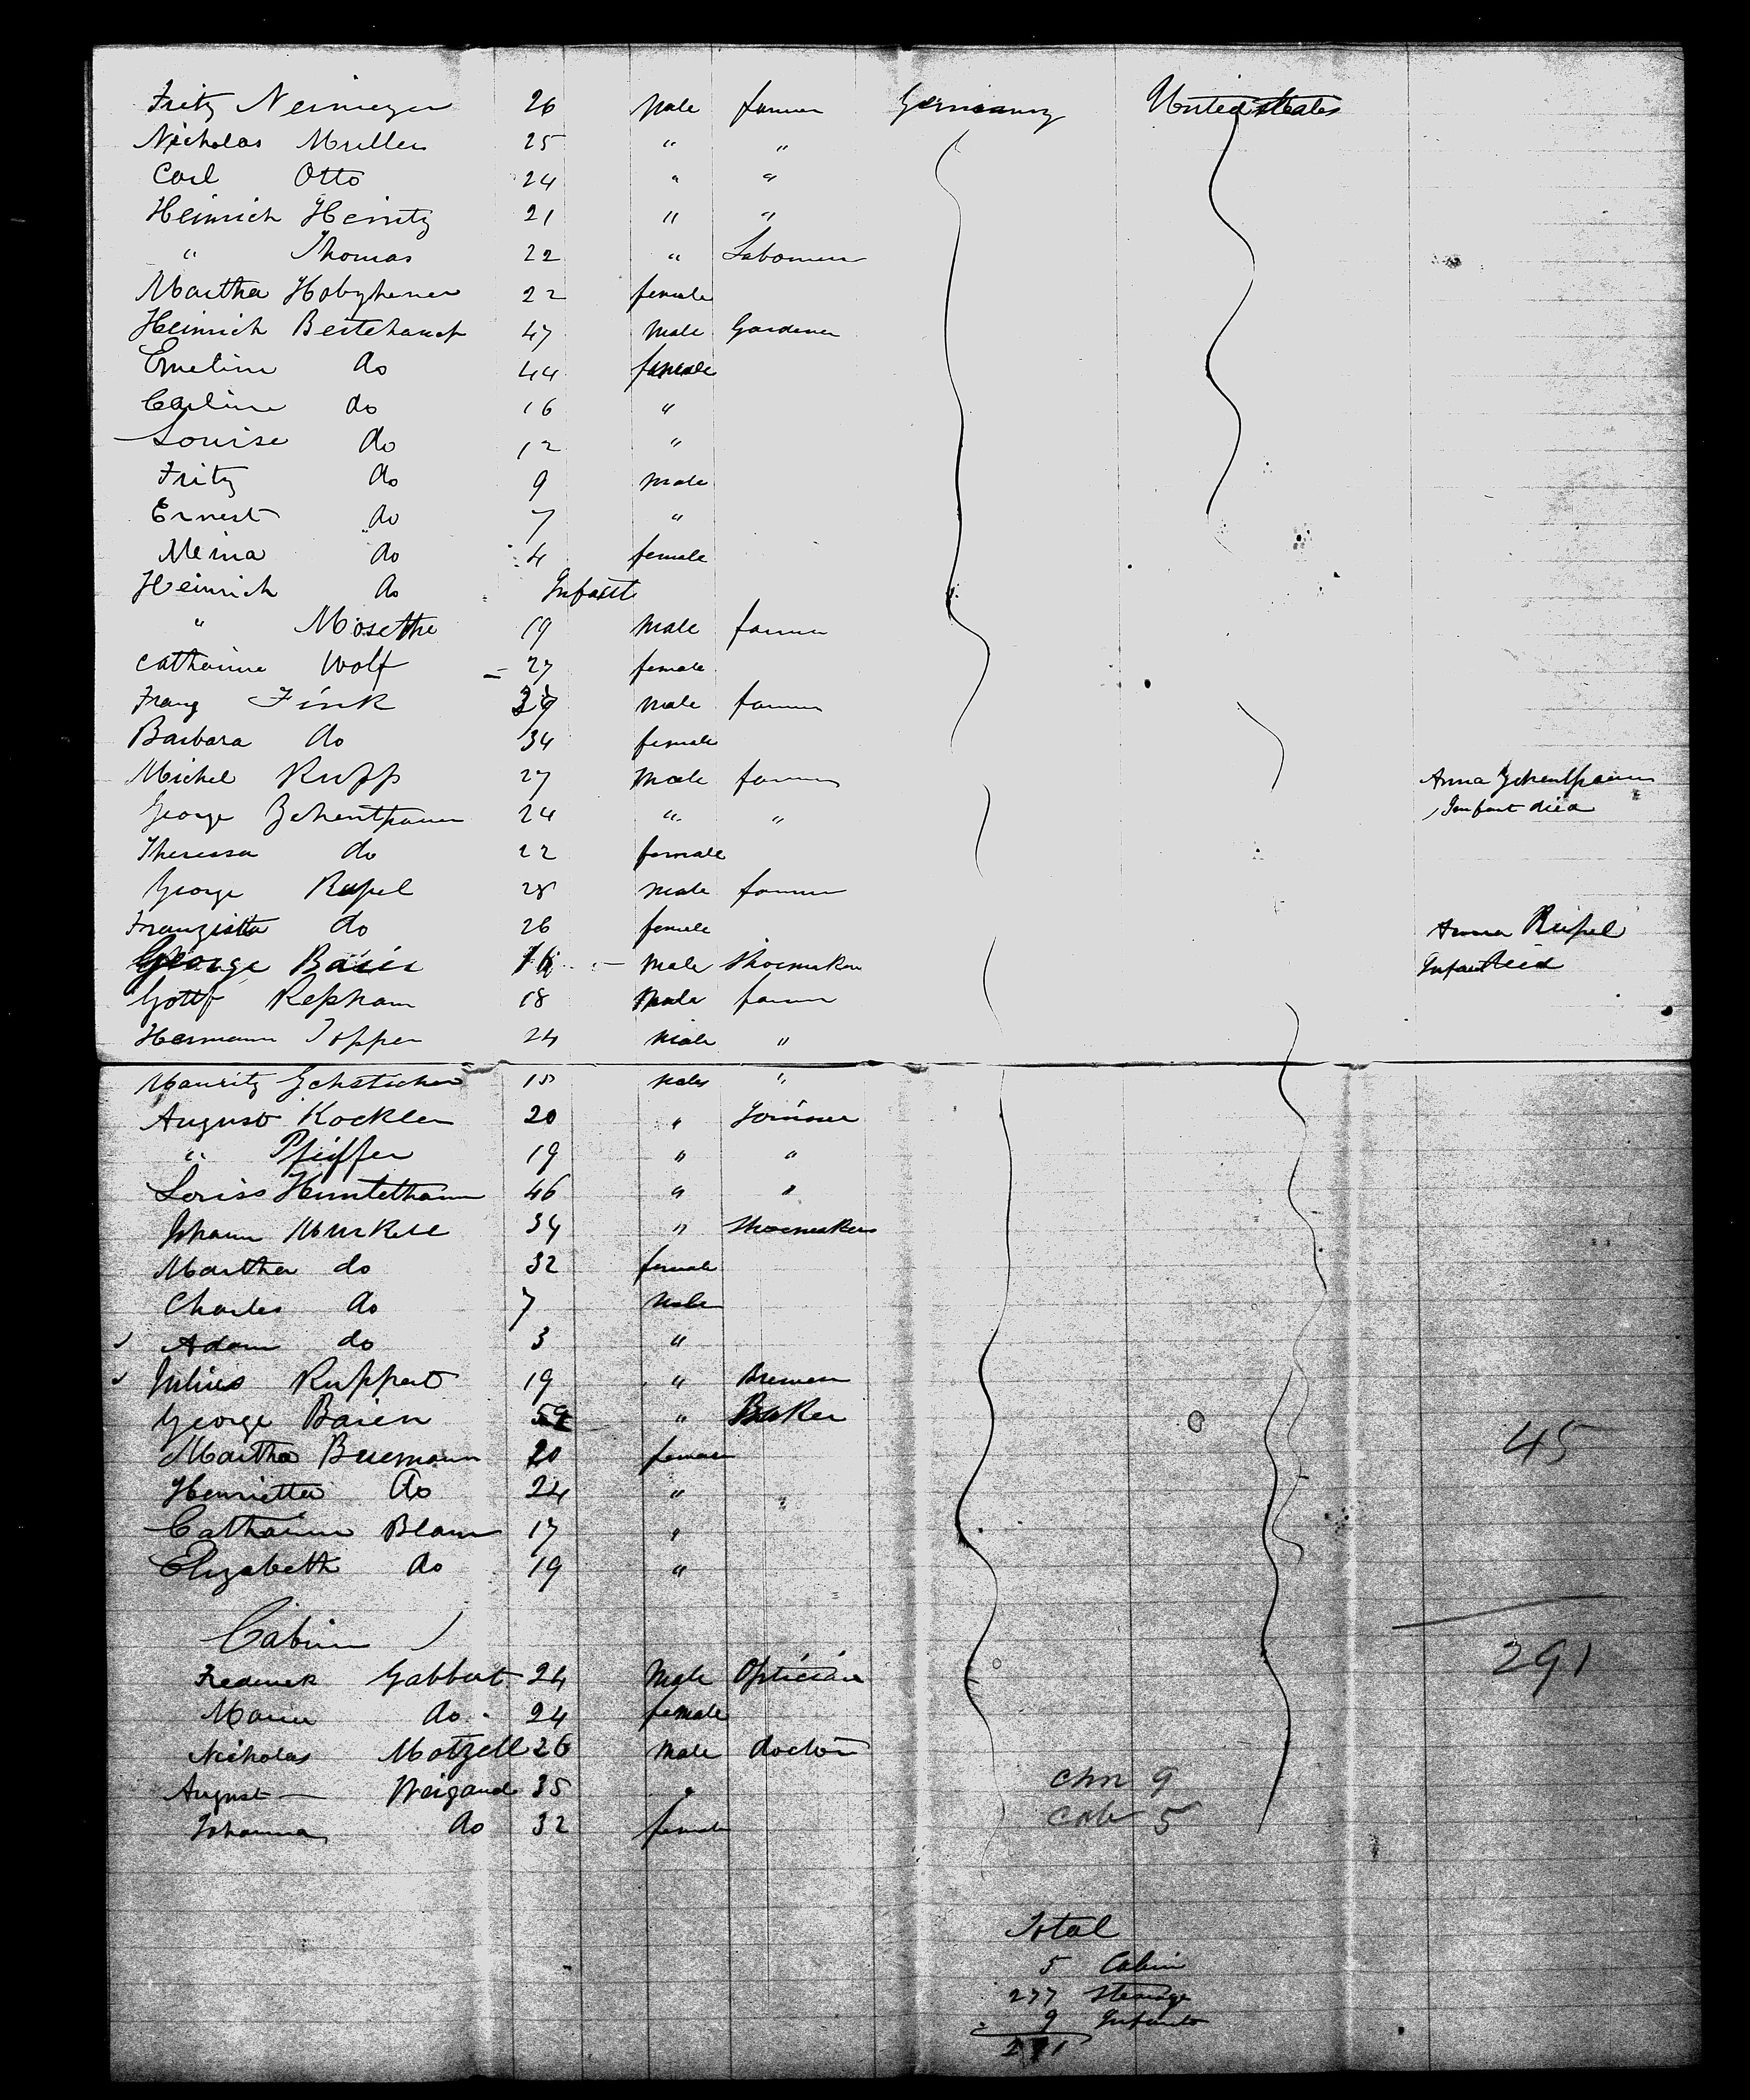 Fritz Neimeyer 26 Male farmer Germany United States
Nicholas Muller 25 " "
Carl Otto 24 " "
Heinrich Heintz 21 " "
" Thomas 22 " Labourer
Martha 22 female
Heinrich 47 Male Gardener
Emeline do 44 female
Carline do 16 "
Louise do 12 "
Fritz do 9 Male
Ernest do 7 "
Meina do 4 female
Heinrich do Infant
" Mosethe 19 Male farmer
Catharine Wolf 27 female
Franz Fink 39 Male farmer
Barbara do 34 female
Michel Rupp 27 Male farmer Anna
George 24 " " Infant died
Theressa do 22 female
George Rupel 28 Male farmer
Franziska do 26 female Anna Rupel
George Baier Male Shoemaker Infant died
Gottf 18 Male farmer
Hermann Topper 24 Male "
Mauritz 18 Male "
August Kockler 20 " Joiner
" Pfeiffer 19 " "
Louis 46 " "
Johann Murkell 34 " Shoemaker
Martha do 32 female
Charles do 7 Male
Adam do 3 "
Julius Ruppert 19 " Brewer
George Baier 59 " Baker
Martha 20 female 45
Henrietta do 24 "
Catharine Blaum 17 "
Elizabeth do 19 "
Cabin
291
Frederick Gabbert 24 Male Optician
Marie do 24 female
Nicholas Motzell 26 Male doctor
August Weigand 35 "
Johanna do 32 female
Chn 9
Cab 5
Total
5 Cabin
277 Steerage
9 Infants
291